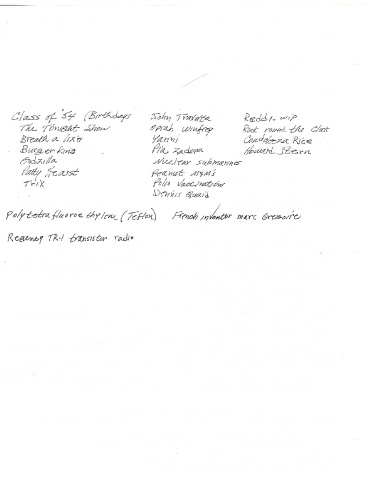 Class of '54 (Birthdays
The Tonight Show
Breath a lizer
Burger King
Godzilla
Patty Hearst
Trix
John Travolta
Oprah Winfrey
Yanni
Pia Zadora
Nuclear submarines
Peanut M&M's
Polio Vaccination
Dennis Quaid
Reddi-wip
Rock round the Clock
Condoleeza Rice
Howard Stern
Polytetrafluoroethylene (Teflon) French inventor marc Gregoire
Regency TR-1 transistor radio